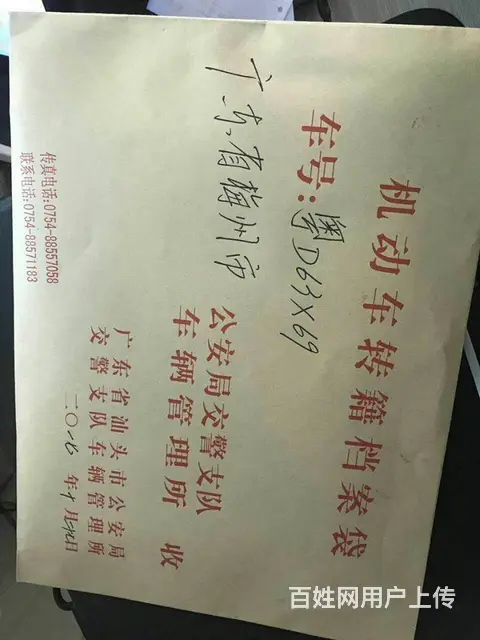 机动车转籍档案袋
车号:粤D63X69
广东省梅州市
公安局交警支队
车辆管理所 收
广东省汕头市公安局
交警支队车辆管理所
传真电话:0754-88557058
联系电话:0754-88571183
百姓网用户上传